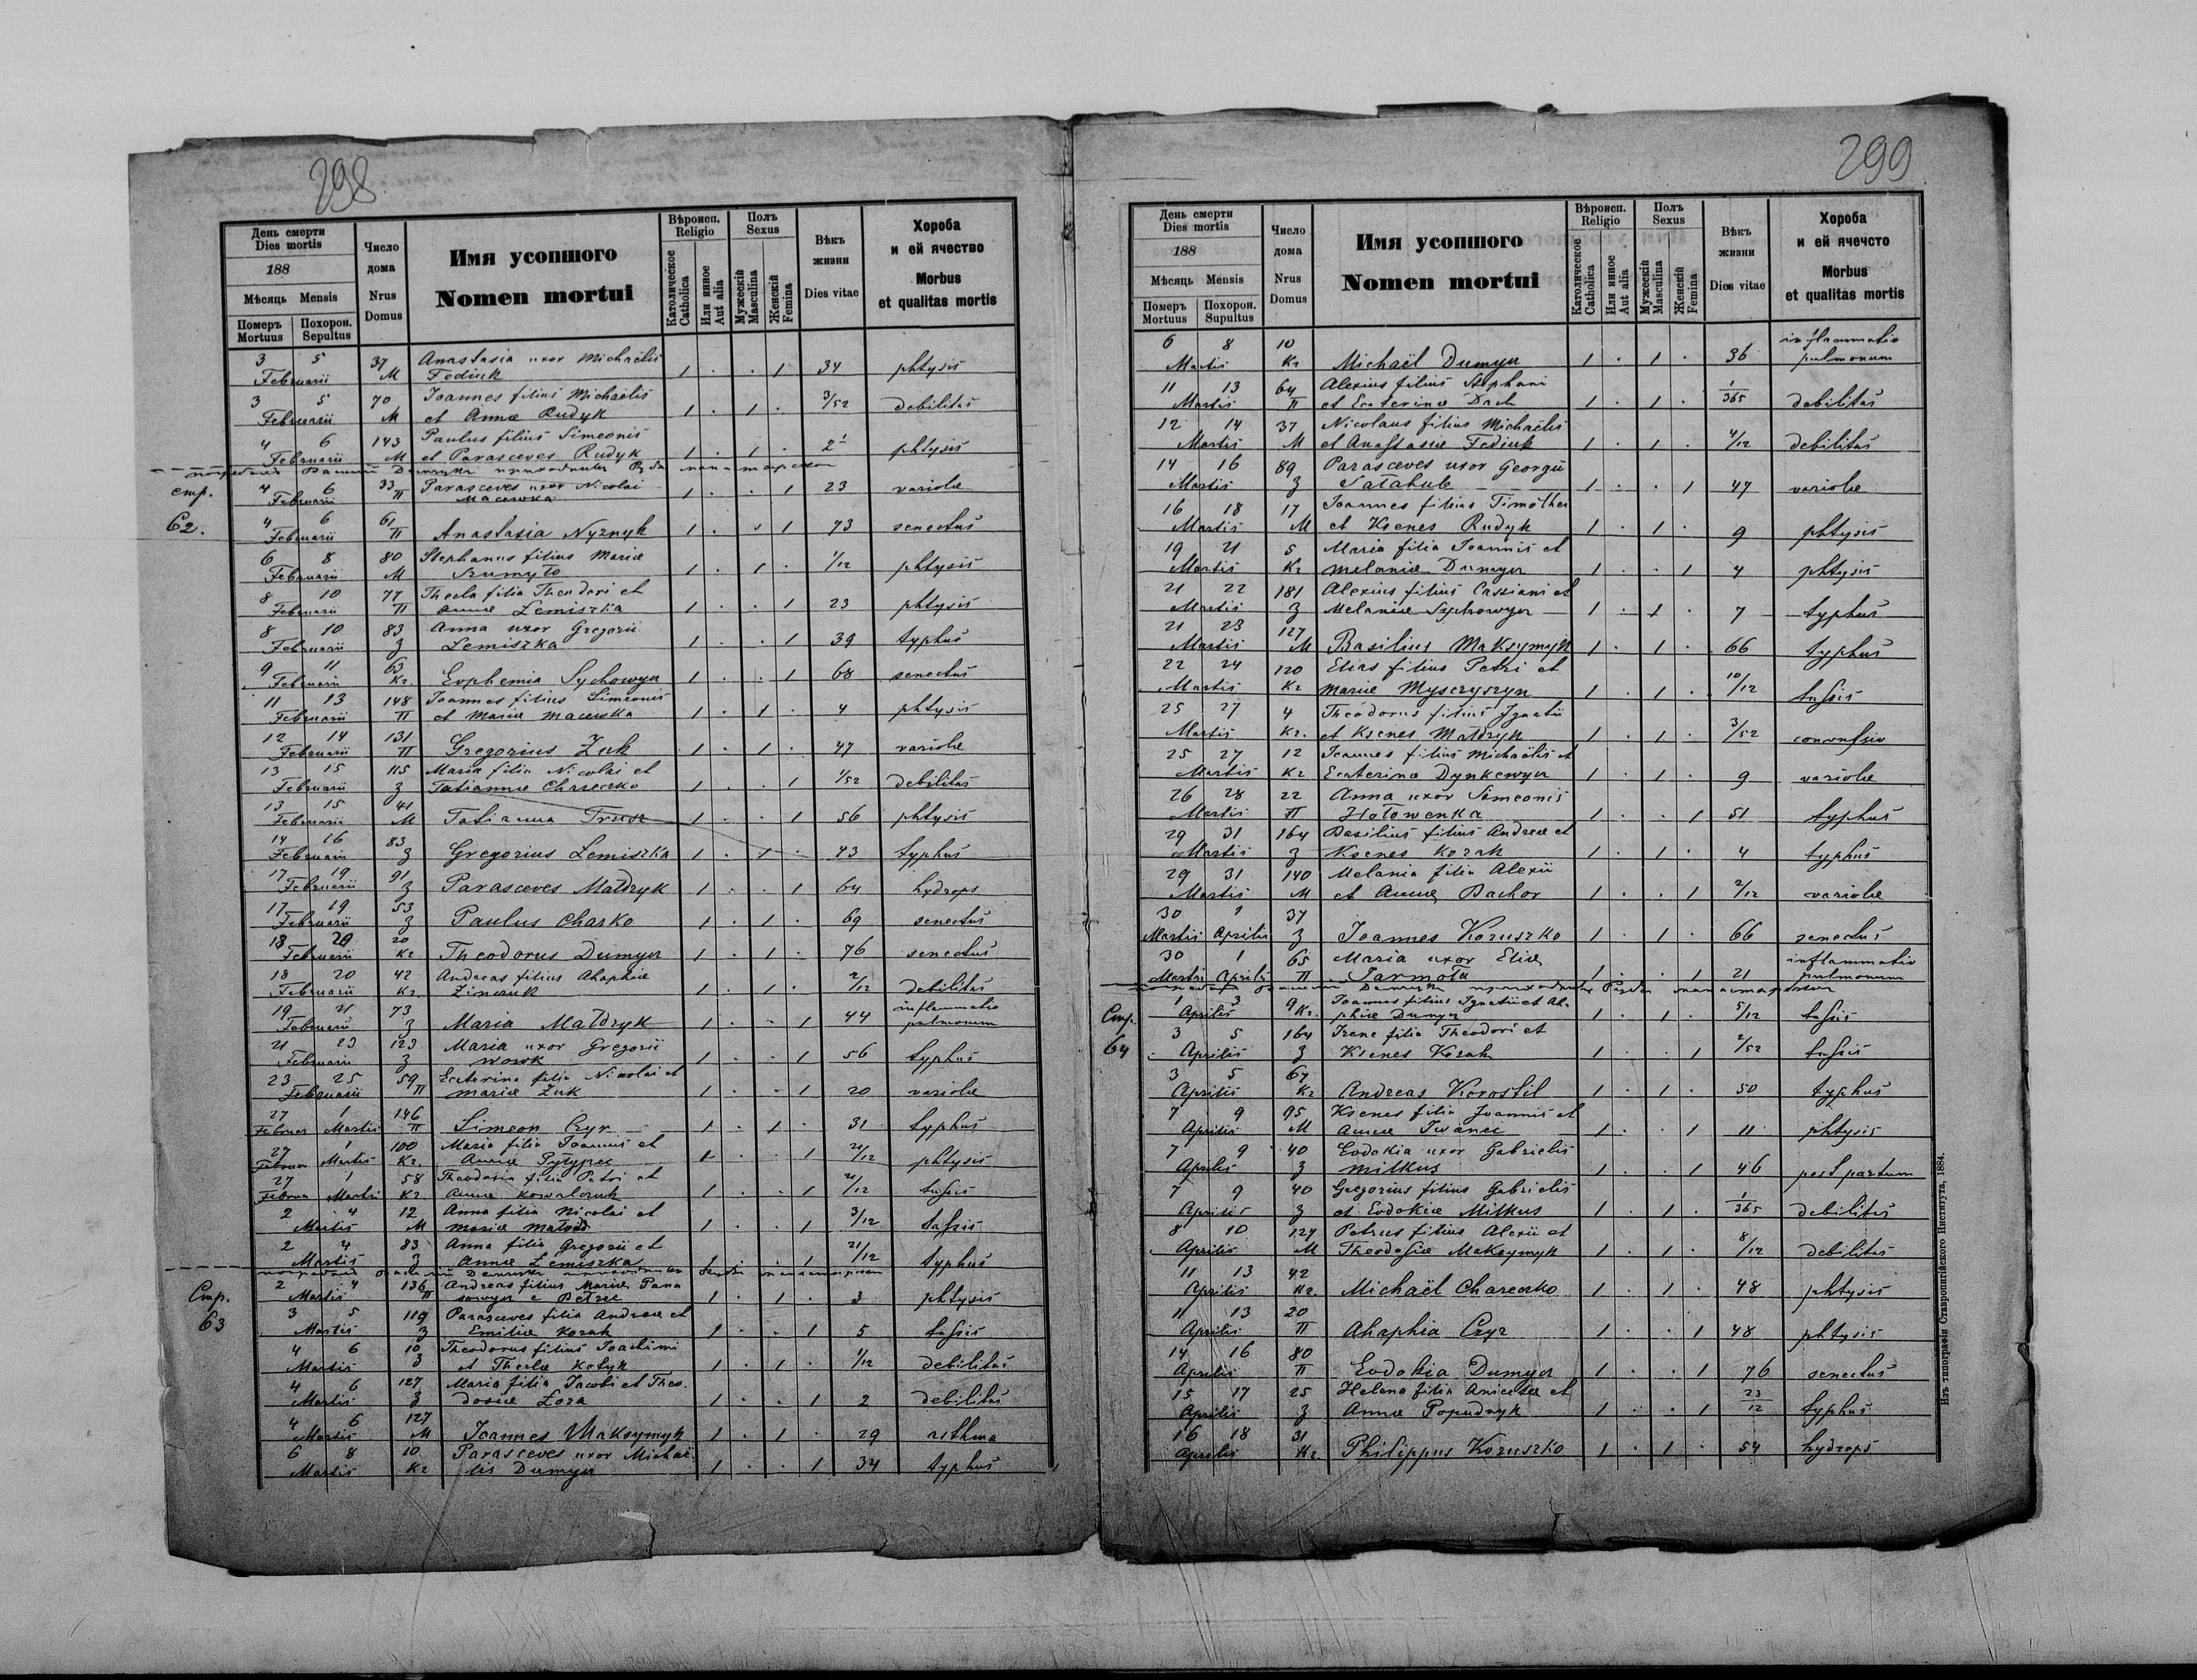 298
День смерти
Dies mortis
188
Мѣсяць Mensis
Померъ Mortuus
Похорон. Sepultus
Число дома
Nrus Domus
Имя усопшого
Nomen mortui
Вѣроисп.
Religio
Католическое Catholica
Или инное Aut alia
Полъ
Sexus
Мужескій Masculina
Женскій Femina
Вѣкъ жизни
Dies vitae
Хороба
и ей ячество
Morbus
et qualitas mortis
3 5 37 Anastasia uxor Michaelis
Februarii M Fediuk 1 . . 1 34 phtysis
3 5 70 Joannes filius Michaelis
Februarii M et Annae Rudyk 1 . 1 . 3/52 debilitas
4 6 143 Paulus filius Simeonis
Februarii M et Parasceves Rudyk 1 . 1 . phtysis
стр.
62.
4 6 33 Parasceves uxor Nicolai
Februarii П Macewka 1 . . 1 23 variolae
4 6 61
Februarii П Anastasia Nyznyk 1 . . 1 73 senectus
6 8 80 Stephanus filius Mariae
Februarii M Szumyło 1 . 1 . 1/12 phtysis
8 10 77 Thecla filia Theodori et
Februarii П Annae Lemiszka 1 . . 1 23 phtysis
8 10 83 Anna uxor Gregorii
Februarii З Lemiszka 1 . . 1 39 typhus
9 11 63
Februarii Кг. Evphemia Sychowyn 1 . . 1 68 senectus
11 13 148 Joannes filius Simeonis
Februarii П et Mariae Macewka 1 . 1 . 4 phtysis
12 14 131
Februarii П Gregorius Żuk 1 . 1 . 47 variolae
13 15 115 Maria filia Nicolai et
Februarii З Tatiannae Chareczko 1 . . 1 1/52 debilitas
13 15 41
Februarii M Tatianna Trusz 1 . . 1 56 phtysis
14 16 83
Februarii З Gregorius Lemiszka 1 . 1 . 43 typhus
17 19 91
Februarii З Parasceves Małdryk 1 . . 1 64 hydrops
17 19 53
Februarii З Paulus Charko 1 . 1 . 69 senectus
18 20 20
Februarii Кг Theodorus Dumyn 1 . 1 . 76 senectus
18 20 42 Andreas filius Ahaphiae
Februarii Кг. Zinczuk 1 . 1 . 2/12 debilitas
19 21 73 inflammatio
Februarii З Maria Małdryk 1 . . 1 44 pulmonum
21 23 123 Maria uxor Gregorii
Februarii З Wowk 1 . . 1 56 typhus
23 25 59 Ecaterina filia Nicolai et
Februarii П Mariae Żuk 1 . . 1 20 variolae
27 1 146
Februar Martis П Simeon Czyr 1 . 1 . 31 typhus
27 1 100 Maria filia Joannis et
Februar Martis Кг. Annae Pyłypec 1 . . 1 phtysis
27 1 58 Theodosia filia Petri et
Februa Martis Кг. Annae Kowalczuk 1 . . 1 tussis
2 4 12 Anna filia Nicolai et
Martis M Mariae 1 . . 1 3/12 tussis
2 4 83 Anna filia Gregorii et
Martis З Annae Lemiszka 1 . . 1 21/12 typhus
Стр.
63
2 4 136 Andreas filius Mariae Pana
Martis П sowyn e Betree 1 . 1 . 3 phtysis
3 5 119 Parasceves filia Andreae et
Martis З Emiliae Kozak 1 . . 1 5 tussis
4 6 10 Theodorus filius Joachimi
Martis З et Theclae Kotyk 1 . 1 . 1/12 debilitas
4 6 127 Maria filia Jacobi et Theo-
Martis З dosiae Łoza 1 . . 1 2 debilitas
4 6 127
Martis M Joannes Maksymyk 1 . 1 . 29 asthma
6 8 10 Parasceves uxor Michae-
Martis Кг lis Dumyn 1 . . 1 34 typhus
299
День смерти
Dies mortis
188
Мѣсяць Mensis
Померъ Mortuus
Похорон. Supultus
Число дома
Nrus Domus
Имя усопшого
Nomen mortui
Вѣроисп.
Religio
Католическое Catholica
Или инное Aut alia
Полъ
Sexus
Мужескій Masculina
Женскій Femina
Вѣкъ жизни
Dies vitae
Хороба
и ей ячечсто
Morbus
et qualitas mortis
6 8 10 inflammatio
Martis Кг Michaël Dumyn 1 . 1 . 36 pulmonum
11 13 64 Alexius filius Stephani
Martis П et Ecaterinae Dach 1 . 1 . 1/365 debilitas
12 14 37 Nicolaus filius Michaelis
Martis M et Anastasiae Fediuk 1 . 1 . 4/12 debilitas
14 16 89 Parasceves uxor Georgii
Martis З Satahub 1 . . 1 47 variolae
16 18 17 Joannes filius Timothei
Martis M et Ksenes Rudyk 1 . 1 . 9 phtysis
19 21 5 Maria filia Joannis et
Martis Кг Melaniae Dumyn 1 . . 1 4 phtysis
21 22 181 Alexius filius Cassiani et
Martis З Melaniae Sychowyn 1 . 1 . 7 typhus
21 23 127
Martis M Basilius Maksymyk 1 . 1 . 66 typhus
22 24 120 Elias filius Petri et
Martis Кг Mariae Myszczyszyn 1 . 1 . 10/12 tussis
25 27 4 Theodorus filius Ignatii
Martis Кг. et Ksenes Małdryk 1 . 1 . 3/52 convulsio
25 27 12 Joannes filius Michaëlis et
Martis Кг Ecaterinae Dynkewyn 1 . 1 . 9 variolae
26 28 22 Anna uxor Simeonis
Martis П Hołowenka 1 . . 1 51 typhus
29 31 164 Basilius filius Andreae et
Martis З Ksenes Kozak 1 . 1 . 4 typhus
29 31 140 Melania filia Alexii
Martis M et Annae Bachor 1 . . 1 2/12 variolae
30 1 37
Martis Aprilis З Joannes Kozuszko 1 . 1 . 66 senectus
30 1 65 Maria uxor Eliae inflammatio
Martis Aprilis П Jarmoła 1 . . 1 21 pulmonum
Стр.
64
1 3 9 Joannes filius Ignatii et Aha-
Aprilis Кг. phiae Dumyn 1 . 1 . 5/12 tussis
3 5 164 Irene filia Theodori et
Aprilis З Ksenes Kozak 1 . . 1 2/52 tussis
3 5 67
Aprilis Кг Andreas Korostil 1 . 1 . 50 typhus
7 9 95 Ksenes filia Joannis et
Aprilis M Annae Iwanci 1 . . 1 11 phtysis
7 9 40 Evdokia uxor Gabrielis
Aprilis З Milkus 1 . . 1 46 post partum
7 9 40 Gregorius filius Gabrielis
Aprilis З et Evdokiae Milkus 1 . 1 . 1/365 debilitas
8 10 127 Petrus filius Alexii et
Aprilis M Theodosiae Maksymyk 1 . 1 . 8/12 debilitas
11 13 42
Aprilis Кг. Michaël Chareczko 1 . 1 . 48 phtysis
11 13 20
Aprilis П Ahaphia Czyr 1 . . 1 48 phtysis
14 16 80
Aprilis П Evdokia Dumyn 1 . . 1 76 senectus
15 17 25 Helena filia Anicetae et
Aprilis З Annae Popudnyk 1 . . 1 23/12 typhus
16 18 31
Aprilis Кг. Philippus Kozuszko 1 . 1 . 54 hydrops
Изъ типографіи Ставропигійского Института, 1884.